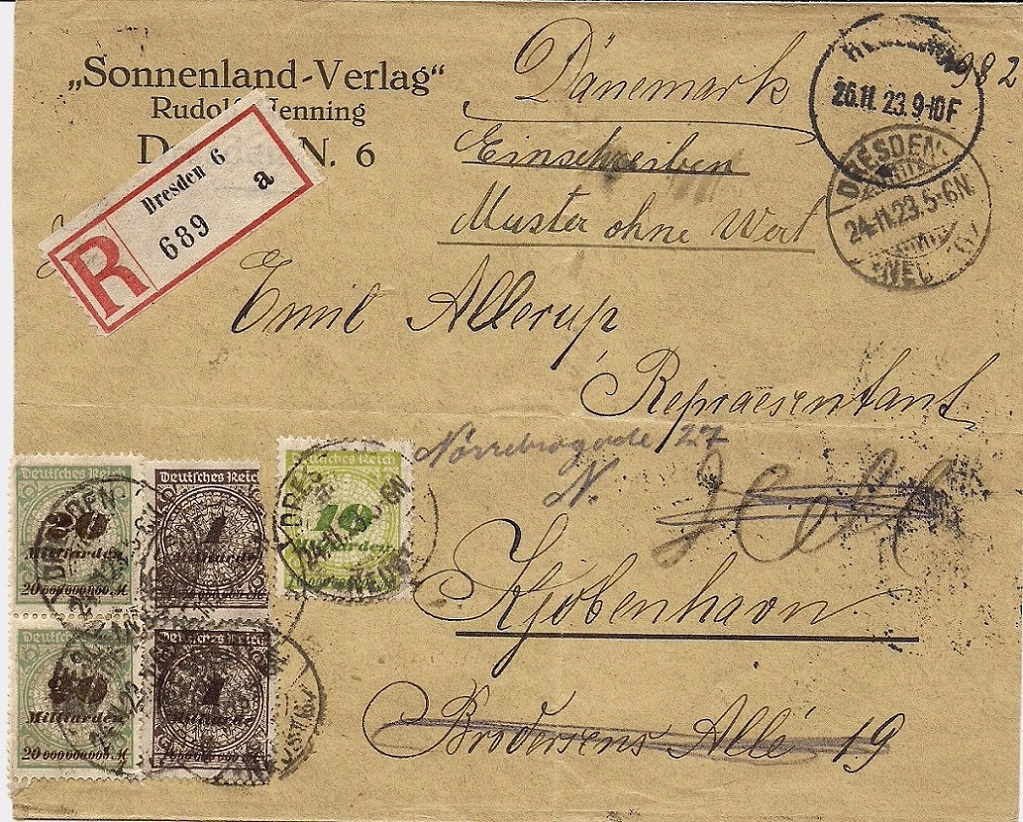 „Sonnenland-Verlag“
Rudolf Henning
N. 6
Dänemark
982
Einschreiben
Muster ohne Wert
26.11.23.9-10F
DRESDEN-
24.11.23.5-6N.
NEU
Dresden 6
a
R
689
Emil Allerup,
Repraesentant
Nörrebrogade 27
N.
Kjöbenhavn
Brodersens Allé 19
Deutsches Reich
20
Milliarden
20 000 000 000 M
Deutsches Reich
1
Milliarde
Deutsches Reich
10
Milliarden
DRESDEN
24.11.23
Deutsches Reich
20
Milliarden
20 000 000 000 M
Deutsches Reich
1
Milliarde